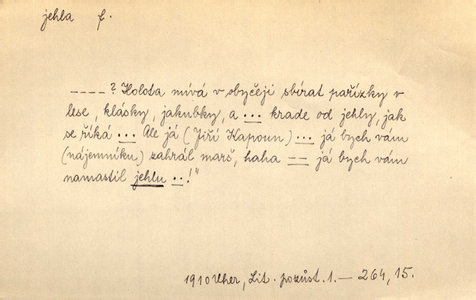 jehla f.
----? Holota mívá v obyčeji sbírat pařízky v
lese, klásky, jakubky, a ... krade od jehly, jak
se říká ... Ale já (Jiří Kapoun) ... já bych vám
(nájemníku) zahrál marš, haha -- já bych vám
namastil jehlu ..!"
1910 Uher, Lit. pozůst. 1. — 264, 15.